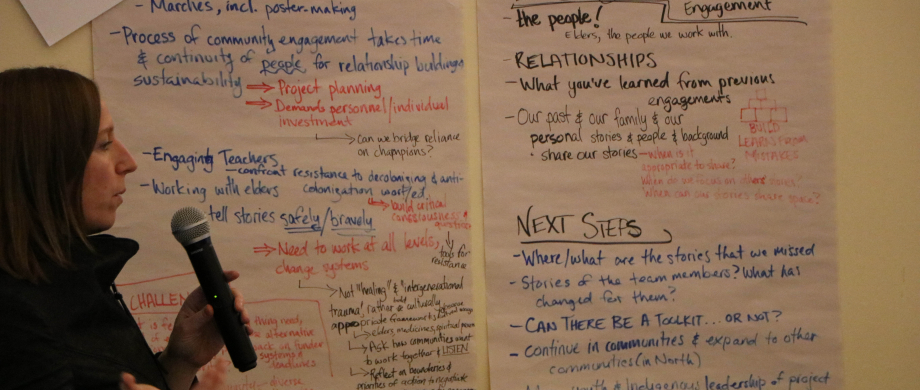 - Marches, incl. poster-making
- Process of community engagement takes time
& continuity of people for relationship building
sustainability
⇒ Project planning
⇒ Demands personnel/individual
investment
→ Can we bridge reliance
on champions?
- Engaging Teachers
- confront resistance to decolonizing & anti-
colonization work/ed.
- Working with elders
→ build critical
consciousness &
tell stories safely/bravely
tools for
resistance
⇒ Need to work at all levels,
change systems
→ Not "healing" & "intergenerational
trauma", rather & culturally
appropriate frameworks
→ elders, medicines,
→ Ask how communities want
to work together & LISTEN
→ Reflect on boundaries &
priorities of
CHALLEN
thing need,
alternative
systems &
deadlines
diverse
Engagement
- the people!
Elders, the people we work with.
- RELATIONSHIPS
- What you've learned from previous
engagements
- Our past & our family & our
personal stories & people & background
• share our stories
- When is it
appropriate to share?
When do we focus on other stories?
When can our stories share space?
BUILD
LEARN FROM
MISTAKES
NEXT STEPS
- Where/what are the stories that we missed
- Stories of the team members? What has
changed for them?
- CAN THERE BE A TOOLKIT... OR NOT?
- Continue in communities & expand to other
communities (in North)
youth & Indigenous leadership of project